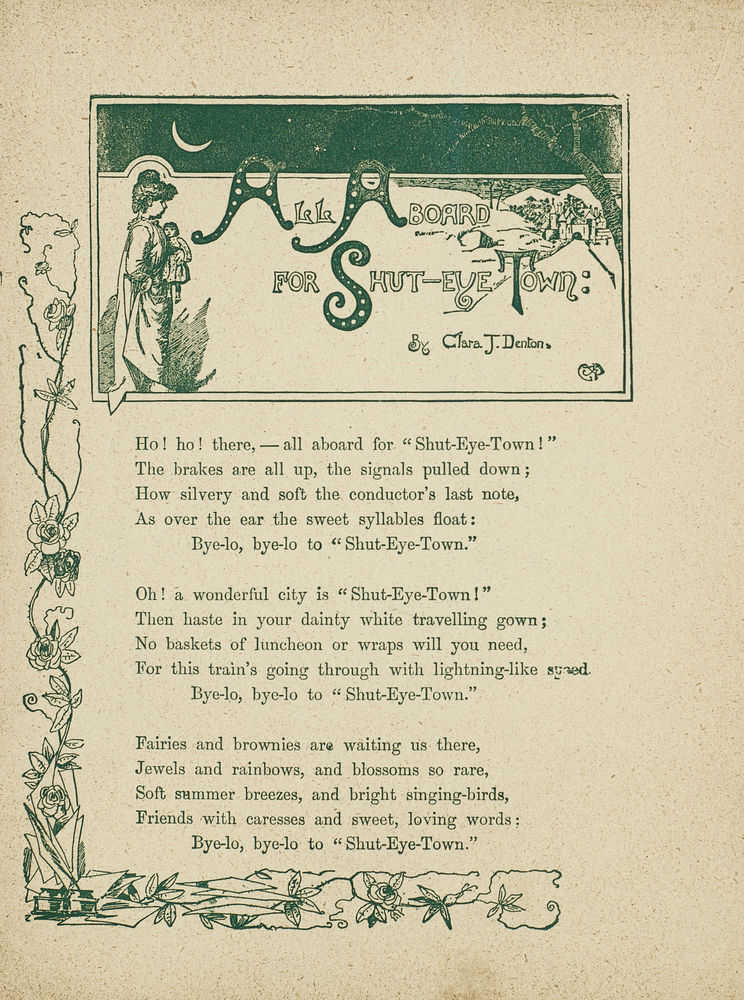 ALL ABOARD
FOR SHUT-EYE TOWN:
By Clara J. Denton.
Ho! ho! there, — all aboard for "Shut-Eye-Town!"
The brakes are all up, the signals pulled down;
How silvery and soft the conductor's last note,
As over the ear the sweet syllables float:
Bye-lo, bye-lo to "Shut-Eye-Town."
Oh! a wonderful city is "Shut-Eye-Town!"
Then haste in your dainty white travelling gown;
No baskets of luncheon or wraps will you need,
For this train's going through with lightning-like speed.
Bye-lo, bye-lo to "Shut-Eye-Town."
Fairies and brownies are waiting us there,
Jewels and rainbows, and blossoms so rare,
Soft summer breezes, and bright singing-birds,
Friends with caresses and sweet, loving words:
Bye-lo, bye-lo to "Shut-Eye-Town."